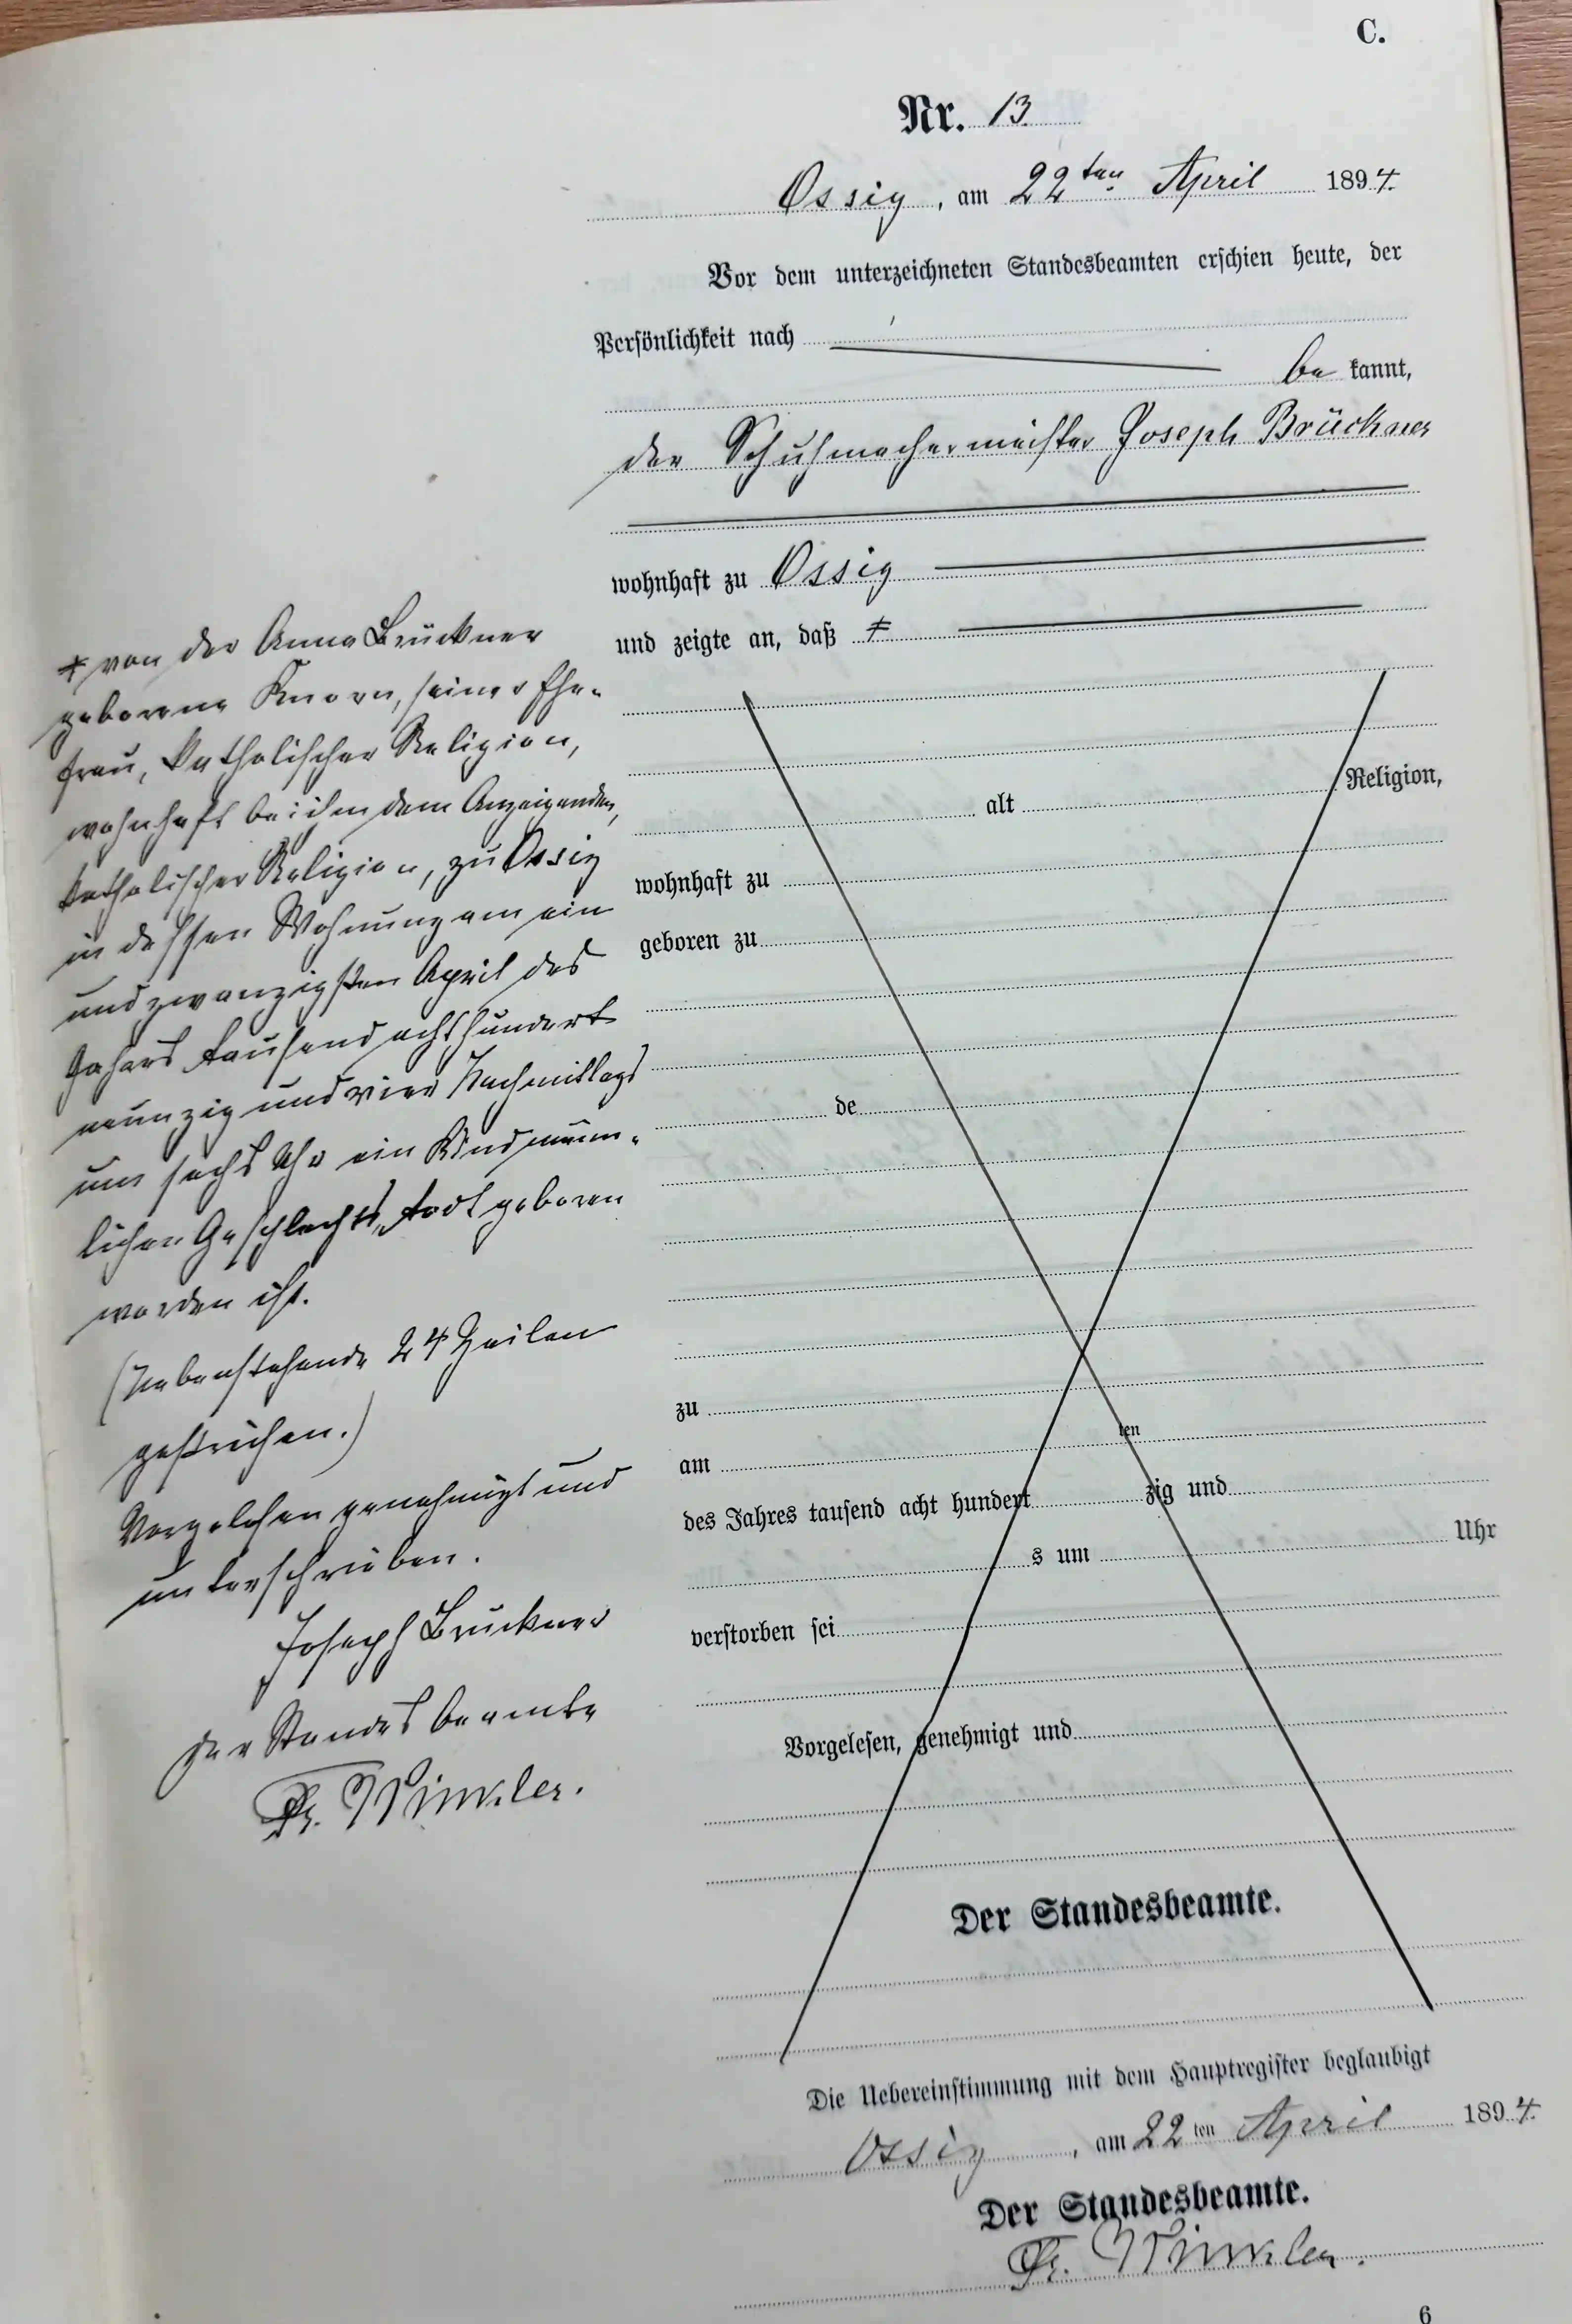 C.
Nr. 13.
Ossig, am 22ten April 1894.
Vor dem unterzeichneten Standesbeamten erschien heute, der
Persönlichkeit nach
be kannt,
der Schuhmachermeister Joseph Brückner
wohnhaft zu Ossig
und zeigte an, daß ⧧
⧧ von der Anna Brückner
geborene Knorn, seiner Ehe-
frau, katholischer Religion,
wohnhaft bei ihm dem Anzeigenden,
katholischer Religion, zu Ossig
in dessen Wohnung am ein
und zwanzigsten April des
Jahres tausend acht hundert
neunzig und vier Nachmittags
um sechs Uhr ein Kind männ-
lichen Geschlechts, todt geboren
worden ist.
(Nebenstehende 24 Zeilen
gestrichen.)
Vorgelesen genehmigt und
unterschrieben.
Joseph Brückner
Der Standesbeamte
Fr. Winkler.
alt Religion,
wohnhaft zu
geboren zu
de
zu
am ten
des Jahres tausend acht hundert zig und
s um Uhr
verstorben sei
Vorgelesen, genehmigt und
Der Standesbeamte.
Die Uebereinstimmung mit dem Hauptregister beglaubigt
Ossig, am 22ten April 1894.
Der Standesbeamte.
Fr. Winkler.
6